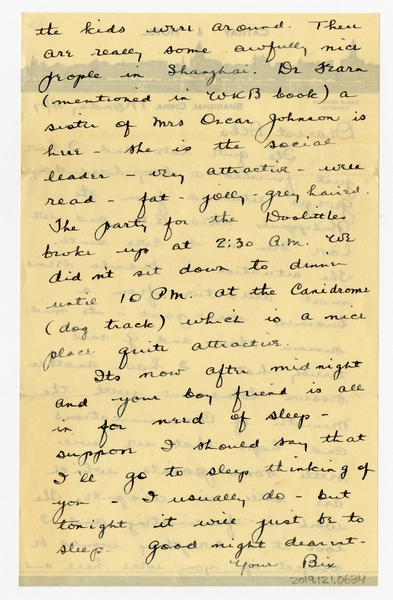 the kids were around. There
are really some awfully nice
people in Shanghai. Dr Fearn
(mentioned in WKB book) a
sister of Mrs Oscar Johnson is
here - she is the social
leader - very attractive - well
read - fat - jolly - grey haired.
The party for the Doolittles
broke up at 2:30 A.M. We
didn't sit down to dinner
until 10 P.M. at the Canidrome
(dog track) which is a nice
place quite attractive.
Its now after midnight
and your boy friend is all
in for need of sleep -
suppose I should say that
I'll go to sleep thinking of
you - I usually do - but
tonight it will just be to
sleep. Good night dearest -
Your Bix
2019.121.0634